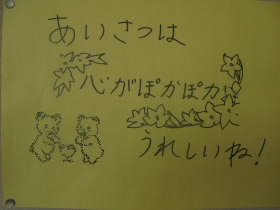 あいさつは
心がぽかぽか
うれしいね!